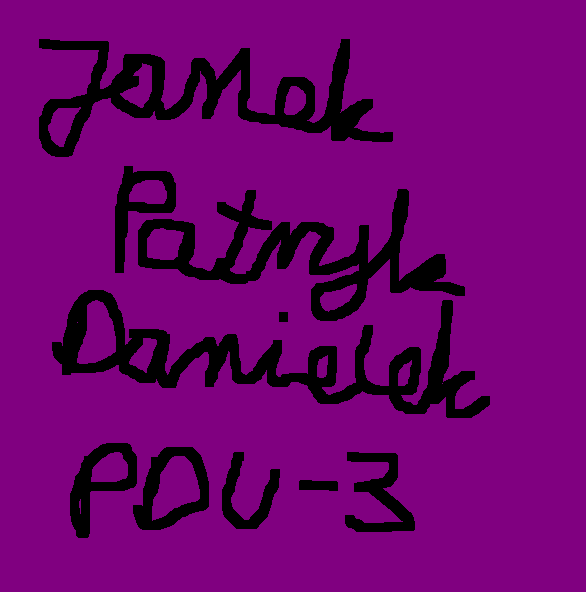 Janek
Patryk
Danielek
PDU-3